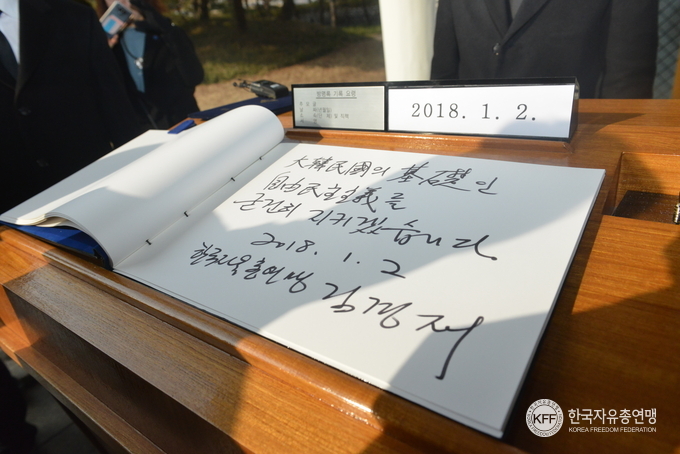 방명록 기록 요령
2018. 1. 2.
大韓民國의 基礎인
自由民主主義를
굳건히 지키겠습니다.
2018. 1. 2
한국자유총연맹 김경재
KFF
한국자유총연맹
KOREA FREEDOM FEDERATION